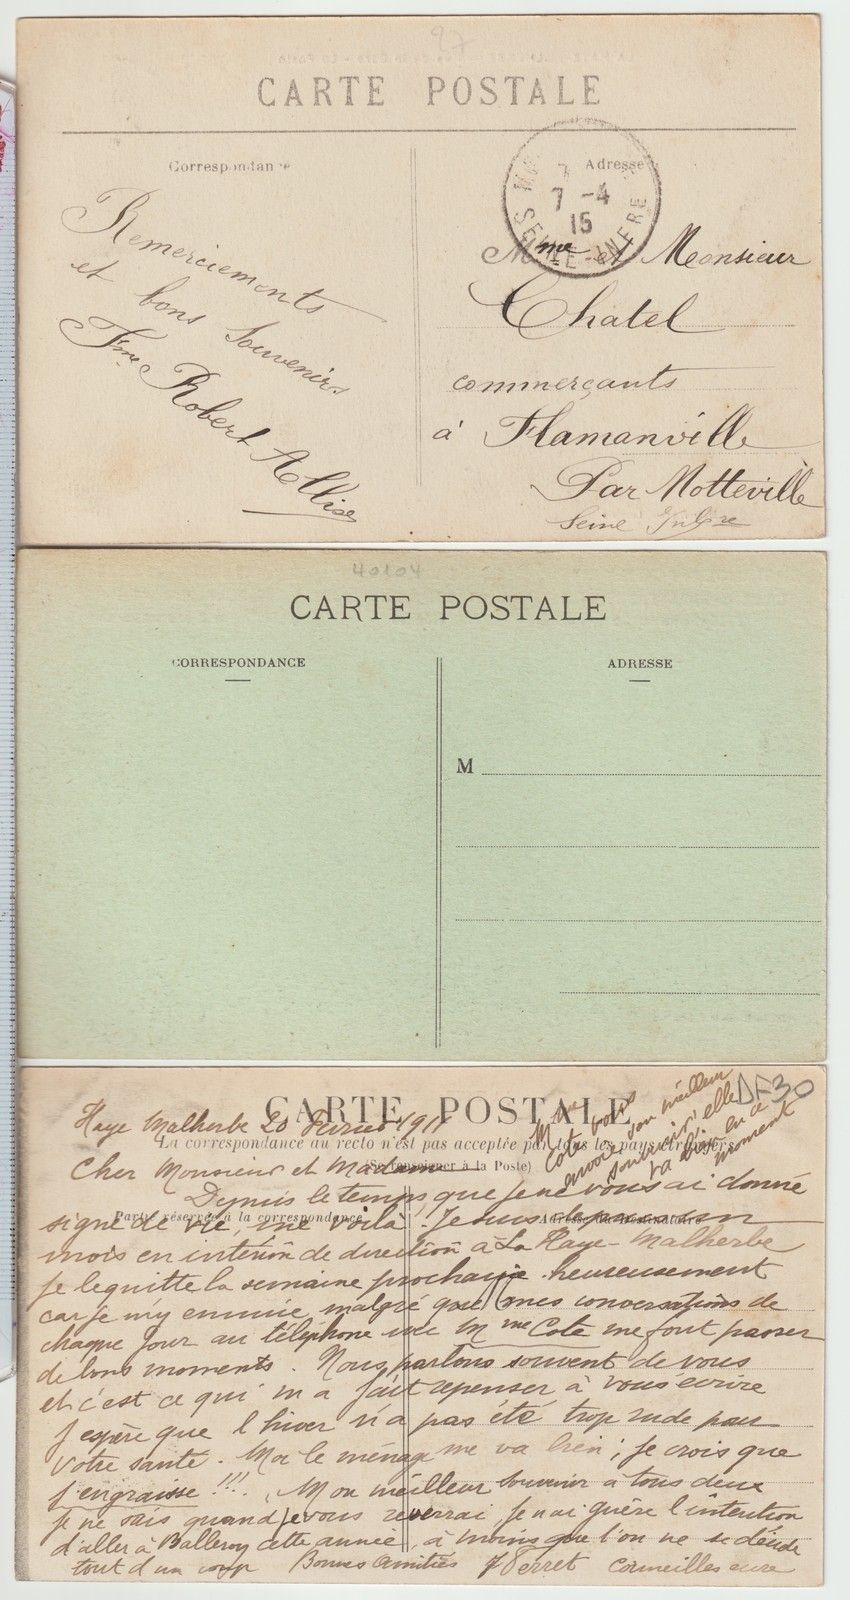 27
CARTE POSTALE
Correspondance
Adresse
7 -4
15
SEINE-INFRE
Remerciements
et bons Souvenirs
Fme Robert
Mme et Monsieur
Chatel
commerçants
à Flamanville
Par Motteville
Seine Infre
40104
CARTE POSTALE
CORRESPONDANCE
ADRESSE
M
DF30
CARTE POSTALE
La correspondance au recto n'est pas acceptée par tous les pays étrangers
(Se renseigner à la Poste)
Partie réservée à la correspondance
Adresse du destinataire
Mme
Cote vous
envoie son meilleur
souvenir, elle
va bien en ce
moment
Haye Malherbe 20 Février 1911
Cher Monsieur et Madame
Depuis le temps que je ne vous ai donné
signe de vie, me voilà ! Je suis depuis un
mois en intérim de direction à La Haye-Malherbe
je le quitte la semaine prochaine heureusement
car je m'y ennuie, malgré que mes conversations de
chaque jour au téléphone avec Mme Cote me font passer
de bons moments. Nous parlons souvent de vous
et c'est ce qui m'a fait repenser à vous écrire
J'espère que l'hiver n'a pas été trop rude pour
votre santé. Moi le ménage me va bien ; je crois que
j'engraisse !!! Mon meilleur souvenir à tous deux
je ne sais quand je vous reverrai, je n'ai guère l'intention
d'aller à Balleroy cette année, à moins que l'on ne se décide
tout d'un coup Bonnes amitiés J Perret Cormeilles eure